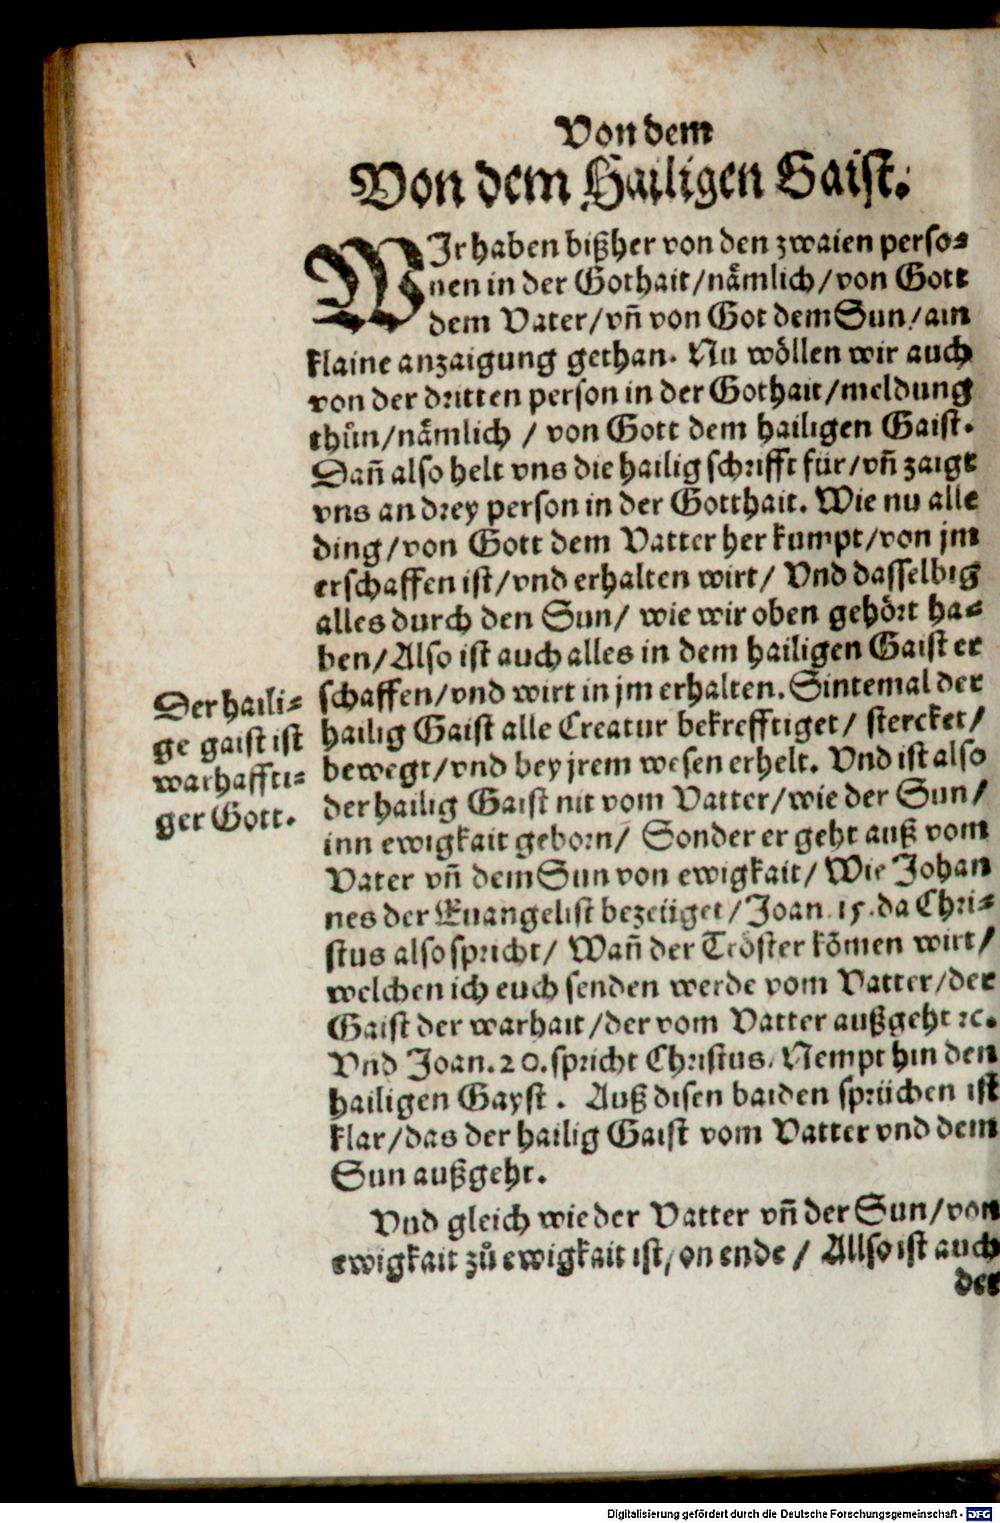 Von dem
Von dem Hailigen Gaist.
WIr haben bißher von den zwaien perso⸗
nen in der Gothait/nämlich/von Gott
dem Vater/vñ von Got dem Sun/ain
klaine anzaigung gethan. Nu wöllen wir auch
von der dritten person in der Gothait/meldung
thůn/nämlich / von Gott dem hailigen Gaist.
Dañ also helt vns die hailig schrifft für/vñ zaigt
vns an drey person in der Gotthait. Wie nu alle
ding/von Gott dem Vatter her kumpt/von jm
erschaffen ist/vnd erhalten wirt/ Vnd dasselbig
alles durch den Sun/ wie wir oben gehört ha⸗
ben/Also ist auch alles in dem hailigen Gaist er
schaffen/vnd wirt in jm erhalten. Sintemal der
hailig Gaist alle Creatur bekrefftiget/ stercket/
bewegt/vnd bey jrem wesen erhelt. Vnd ist also
der hailig Gaist nit vom Vatter/wie der Sun/
inn ewigkait geborn/ Sonder er geht auß vom
Vater vñ dem Sun von ewigkait/ Wie Johan
nes der Euangelist bezeüget/Joan. 15. da Chri⸗
stus also spricht/ Wañ der Tröster kõmen wirt/
welchen ich euch senden werde vom Vatter/der
Gaist der warhait/der vom Vatter außgeht ꝛc.
Vnd Joan. 20. spricht Christus. Nempt hin den
hailigen Gayst . Auß disen baiden sprüchen ist
klar/das der hailig Gaist vom Vatter vnd dem
Sun außgeht.
Vnd gleich wie der Vatter vñ der Sun/von
ewigkait zů ewigkait ist/on ende / Allso ist auch
der
Der haili⸗
ge gaist ist
warhaffti⸗
ger Gott.
Digitalisierung gefördert durch die Deutsche Forschungsgemeinschaft - DFG